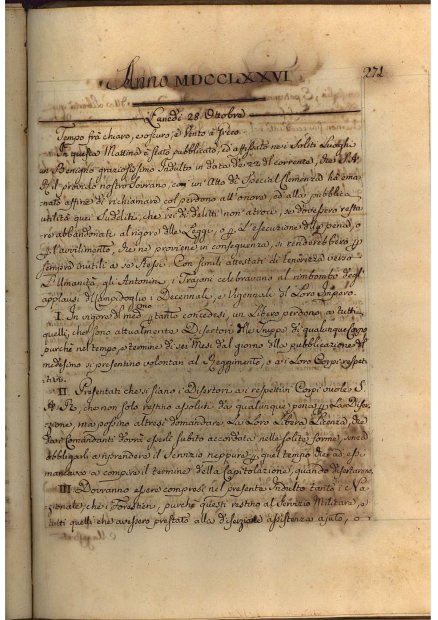 Anno MDCCLXXVI
271
Lunedì 28. Ottobre
Tempo frà chiaro, e oscuro, e Vento a
In questa Mattina è stato pubblicato, ed affissato nei Soliti Luoghi
un Benigno graziosissimo Indulto in data de 22 del corrente, che S. A.
R. il provido nostro Sovrano, con un' Atto di Special Clemenza hà ema
nato affine di richiamare col perdono all' onore, ed alla pubblica
utilità quei Sudditi, che rei di delitti non atroci, se dovessero resta
re abbandonati al rigore delle Leggi, o p l' esecuzione delle pene, o
p l' avvilimento, che ne proviene in conseguenza, si renderebbero p
sempre inutili a se stessi. Con simili attestati di tenerezza verso
l' Umanità gli Antonini, i Trajani celebravano al rimbombo degli
applausi del Campidoglio i Decennali, e Vigennali del Loro Impero.
I. In vigore di med tanto concedesi, un Libero perdono a tutti
quelli, che sono attualmente Disertori delle Truppe di qualunque Corpo
purchè nel tempo, e termine di sei Mesi dal giorno della pubblicazione del
medesimo si presentino volontari al Reggimento, o ai Loro Corpi respet
tivi.
II. Presentati che si siano i Disertori ai respettivi Corpi vuole S.
A. R., che non solo restino assoluti da qualunque pena p La Diser
zione, ma possino altresì domandare La Loro Libera Licenza, che
dai Comandanti dovrà esserli subito accordata nelle solite forme, senza
obbligarli a riprendere il Servizio neppure p quel tempo che ad essi
mancava a compire il termine della Capitolazione, quando disertarono.
III. Dovranno essere compresi nel presente Indulto tanto i Na
zionali, che i Forestieri, purchè questi restino al Servizio Militare, e
tutti quelli che avessero prestato alla diserzione assistenza ajuto, o